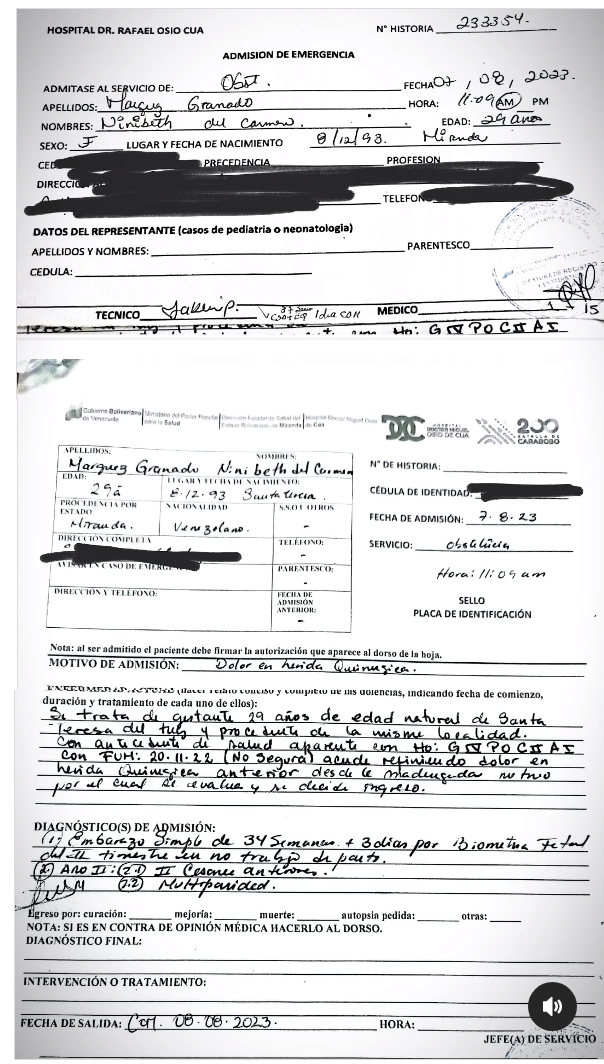 HOSPITAL DR. RAFAEL OSIO CUA
N° HISTORIA 233354.
ADMISION DE EMERGENCIA
ADMITASE AL SERVICIO DE: Obst. FECHA 07, 08, 2023.
APELLIDOS: Marquz Granado HORA: 11:09 AM PM
NOMBRES: Ninibeth del Carmen. EDAD: 29 años
SEXO: F LUGAR Y FECHA DE NACIMIENTO 8/12/93. Miranda
CED PRECEDENCIA PROFESION
DIRECCI TELEFON
DATOS DEL REPRESENTANTE (casos de pediatria o neonatologia)
APELLIDOS Y NOMBRES: PARENTESCO
CEDULA:
TECNICO MEDICO 15
Ho: G IV P0 C II A I
Gobierno Bolivariano de Venezuela
Ministerio del Poder Popular para la Salud
Dirección Estadal de Salud del Estado Bolivariano de Miranda
HOSPITAL DOCTOR MIGUEL OSIO DE CUA
200 BATALLA DE CARABOBO
APELLIDOS: NOMBRES:
Marquez Granado Ninibeth del Carmen
EDAD: LUGAR Y FECHA DE NACIMIENTO:
29ã 8-12-93 Santa teresa.
PROCEDENCIA POR ESTADO NACIONALIDAD S.S.O U OTROS
Miranda. Venezolano. -
DIRECCIÓN COMPLETA TELÉFONO:
-
AVISAR EN CASO DE EMERG PARENTESCO:
-
DIRECCIÓN Y TELÉFONO: FECHA DE ADMISIÓN ANTERIOR:
-
N° DE HISTORIA:
CÉDULA DE IDENTIDAD:
FECHA DE ADMISIÓN: 7-8-23
SERVICIO: obstetricia
Hora: 11:09 am
SELLO
PLACA DE IDENTIFICACIÓN
Nota: al ser admitido el paciente debe firmar la autorización que aparece al dorso de la hoja.
MOTIVO DE ADMISIÓN: Dolor en herida Quirurgica.
ENFERMEDAD ACTUAL (hacer relato conciso y completo de las dolencias, indicando fecha de comienzo,
duración y tratamiento de cada uno de ellos):
Se trata de gestante 29 años de edad natural de Santa
Teresa del tuy y procedente de la misma localidad.
Con antecedente de salud aparente con Ho: G IV P0 C II A I
con FUM: 20-11-22 (No Segura) acude refiriendo dolor en
herida Quirurgica anterior desde la madrugada
por el cual se evalua y se decide ingreso.
DIAGNÓSTICO(S) DE ADMISIÓN:
(1) Embarazo Simple de 34 Semanas + 3 dias por Biometria Fetal
del II trimestre en no trabajo de parto.
(2) ARO II: (2.1) II Cesareas anteriores.
(2.2) Multiparidad.
Egreso por: curación: mejoría: muerte: autopsia pedida: otras:
NOTA: SI ES EN CONTRA DE OPINIÓN MÉDICA HACERLO AL DORSO.
DIAGNÓSTICO FINAL:
INTERVENCIÓN O TRATAMIENTO:
FECHA DE SALIDA: 08-08-2023. HORA:
JEFE(A) DE SERVICIO